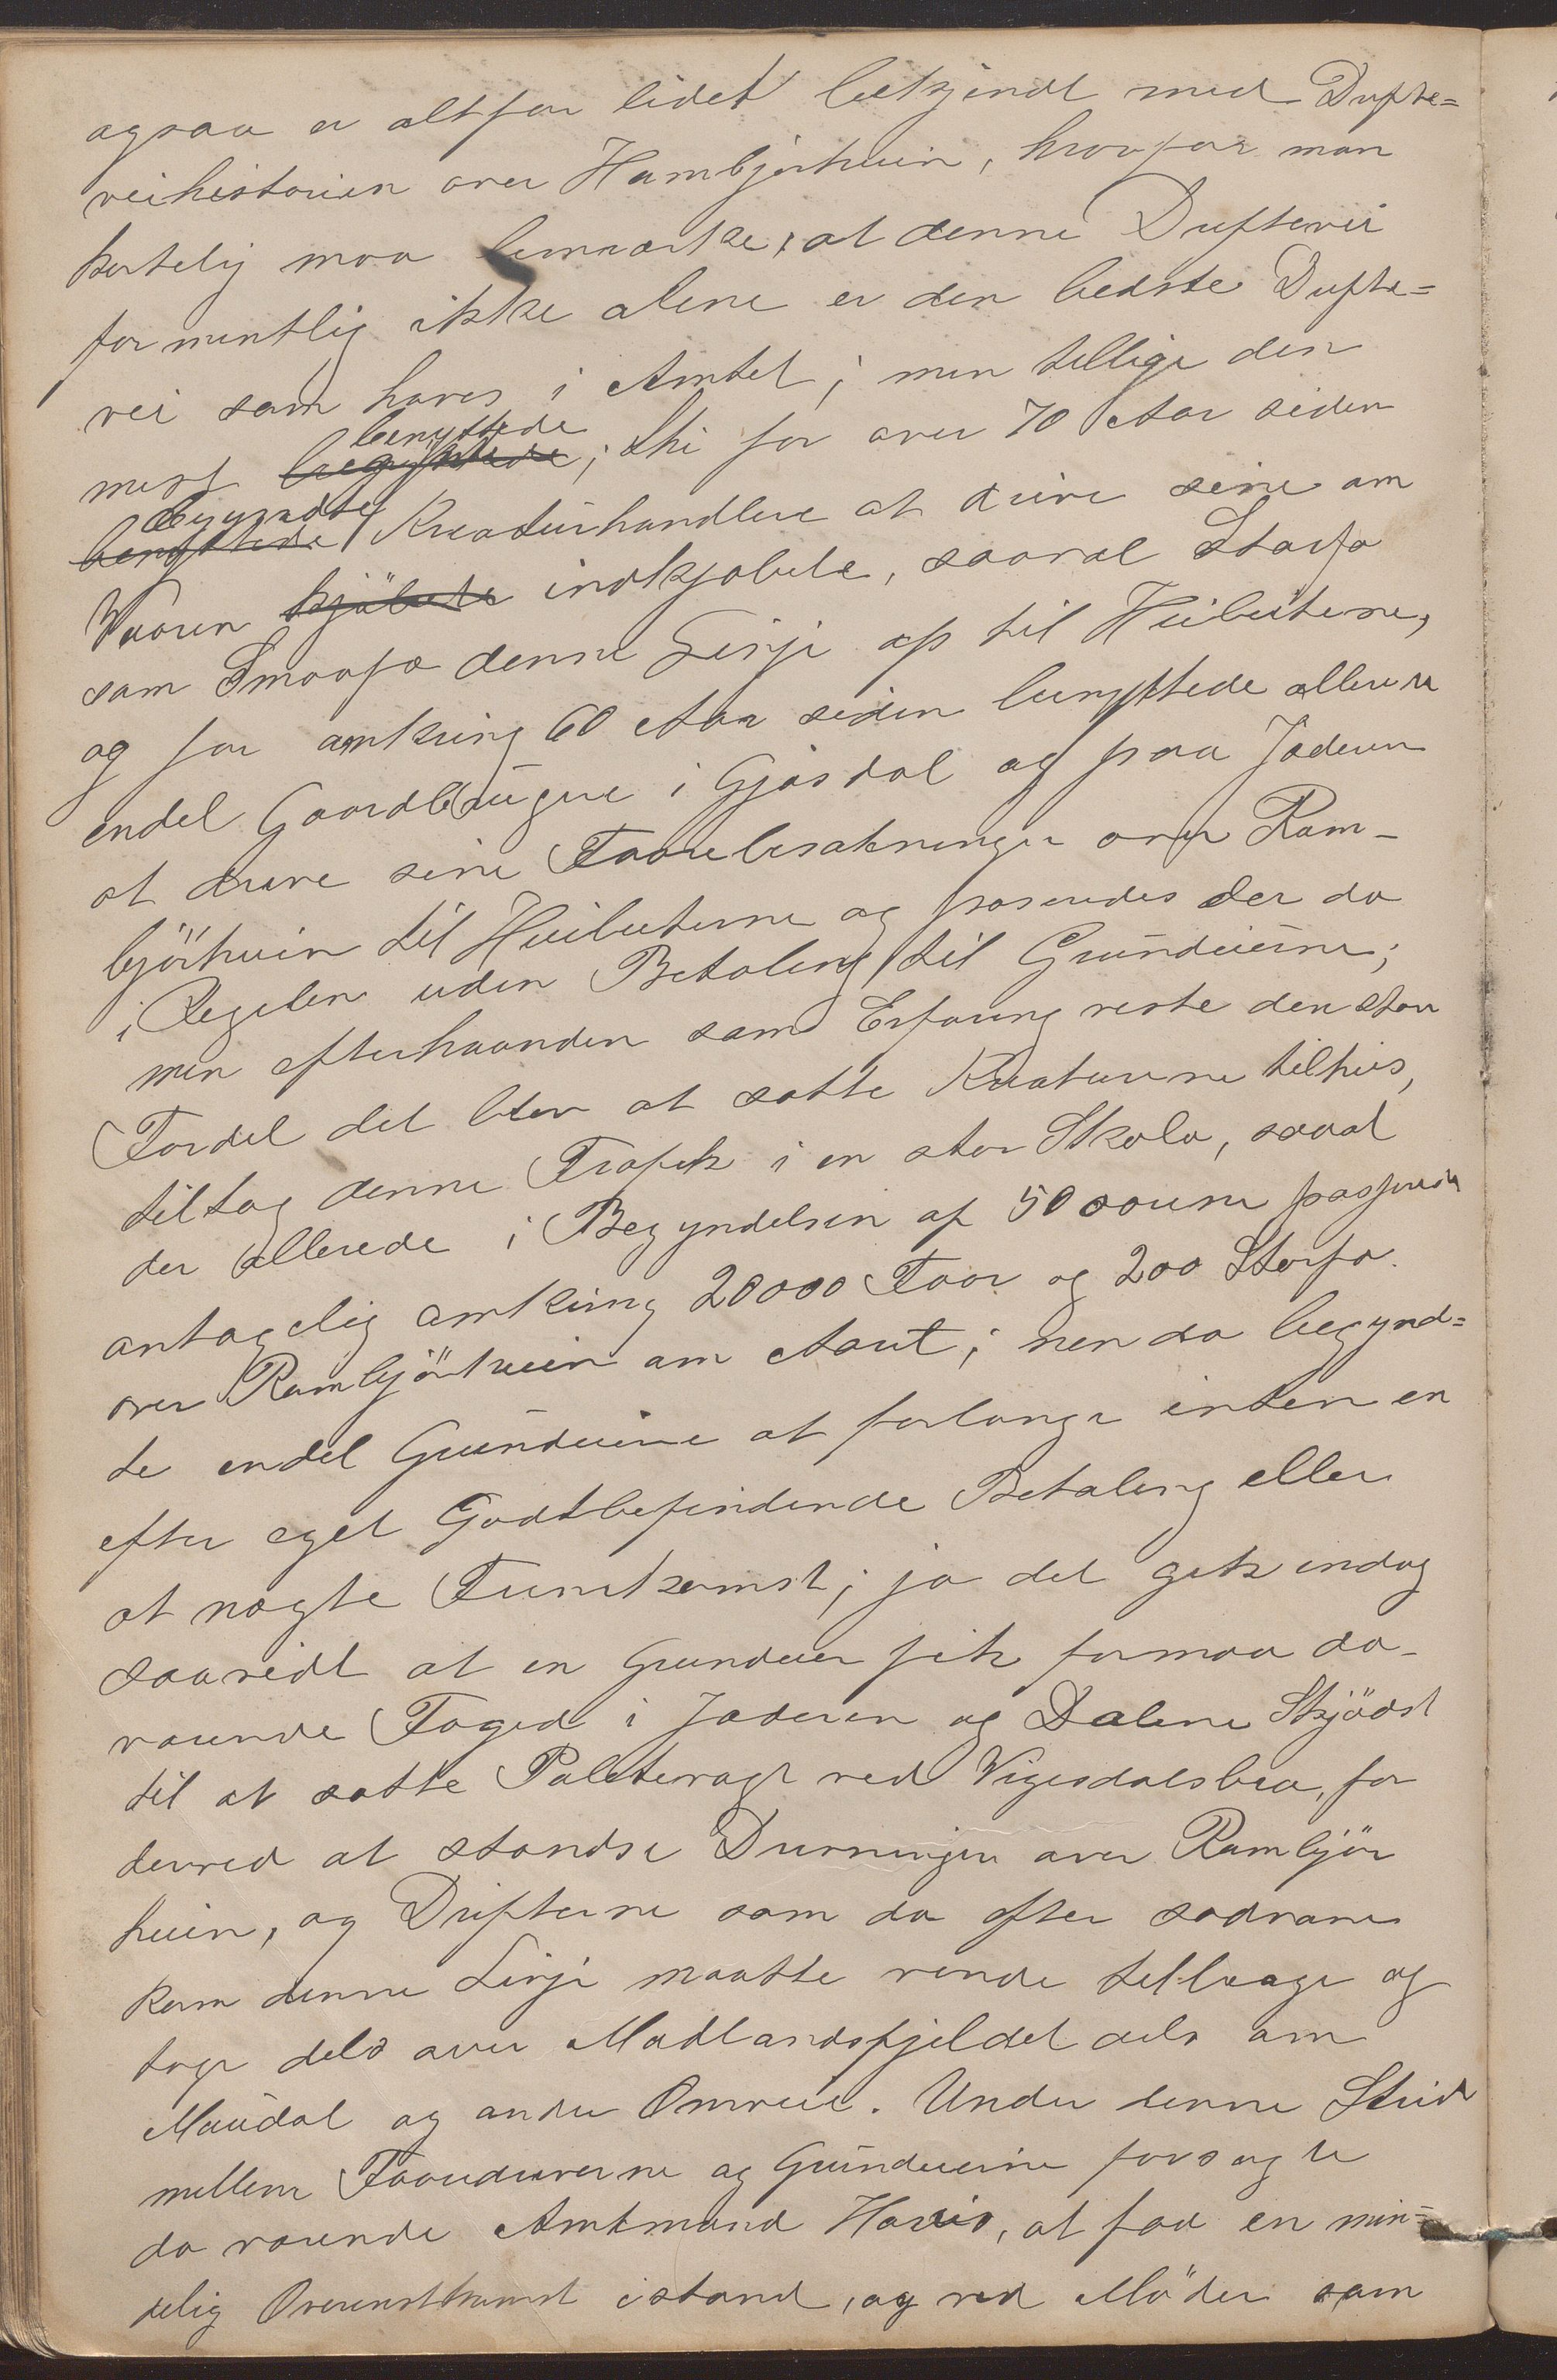 ogsaa er altfor lidet bekjendt med Drifte=
veihistorien over Hambjørheien, hvorfor man
kortelig maa bemærke, at denne Driftevei
formentlig ikke alene er den bedste Drifte=
vei som haves i Amtet; men tillige den
mest begyndte benyttede; thi for over 70 Aar siden
benyttede begyndte Kreaturhandlere at drive sine om
Vaaren kjöbete indkjøbete, saavel Storfæ
som Smaafæ denne Linje op til Heibeiterne,
og for omkring 60 Aar siden benyttede allerede
endel Gaardbrugere i Gjæsdal og paa Jæderen
at drive sine Faarebesætninger over Ram-
björheien til Heibeiterne og paseredes der da
i Regelen uden Betaling til Grundeierne;
men efterhaanden som Erfaring viste den store
Fordel det blev at sætte Kreaturerne tilheis,
tiltog denne Trafik i en stor Skala, saaat
der allerede i Begyndelsen af 50 aarene passerede
antagelig omkring 20000 Faar og 200 Storfæ
over Rambjörheien om Aaret; men da begynd=
te endel Grundeiere at forlange enten en
efter eget Godtbefindende Betaling eller
at nægte Fremkomst; ja det gik endog
saavidt at en Grundeier fik formaa da-
værende Foged i Jæderen og Dalene Skjödst
til at sætte Politivagt ved Vigesdalsbro, for
derved at standse Drivningen over Rambjör
heien, og Drifterne som da efter sædvane
kom denne Linje maatte vende tilbage og
tage dels over Madlandsfjeldet dels om
Maudal og andre Omveie. Under denne Strid
mellem Faaredriverne og Grundeierne forsøgte
da værende Amtmand Harris, at faa en min=
delig Overenstkomst istand, og ved Möder som